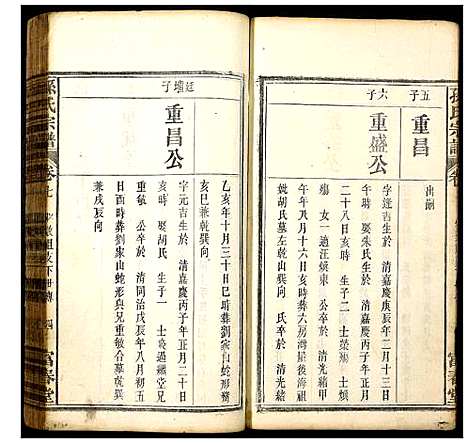 孫氏宗譜
卷
富春堂
五子
重昌
出嗣
六子
重盛公
字逢吉生於 清嘉慶庚辰年二月十三日
午時 娶朱氏生於 清嘉慶丙子年正月
二十八日亥時 生子二 士榮 士煩
殤 女一適汪煥東 公卒於 清光緒甲
午年八月初六日亥時葬六房灣屋後胡
兢胡氏墓左乾山巽向 氏卒於 清光緒
乙亥年十月三十日巳時葬劉家山蛇形
亥巳兼乾巽向
廷墰子
重昌公
字元吉生於 清嘉慶丙子年正月二十日
亥時 娶胡氏 生子一 士 繼堂兄
重敏 公卒於 清同治戊辰年八月初五
日酉時葬劉家山蛇形與兄重敏合墓乾巽
兼戌辰向
孫氏宗譜
卷七
敏祖支下世傳
四
富春堂